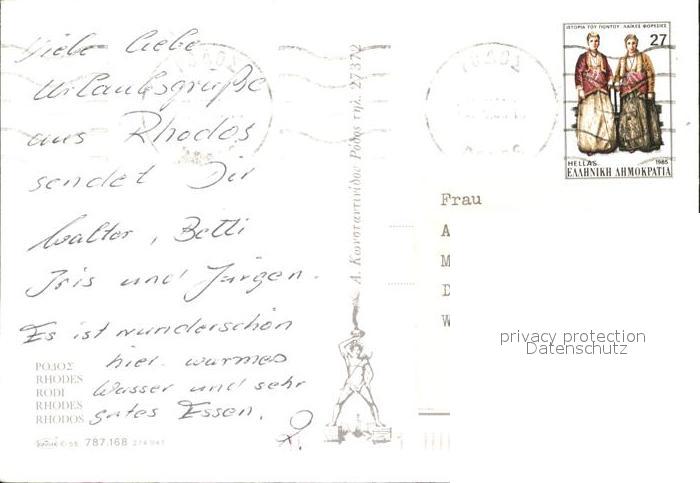 Viele liebe
Urlaubsgrüße
aus Rhodos
sendet Dir
Walter, Betti
Iris und Jürgen.
Es ist wunderschön
hier. warmes
Wasser und sehr
gutes Essen.
ΡΟΔΟΣ
RHODES
RODI
RHODES
RHODOS
787.168
Α. Κωνσταντινίδου Ρόδος τηλ. 27372
ΙΣΤΟΡΙΑ ΤΟΥ ΠΟΝΤΟΥ ΛΑΪΚΕΣ ΦΟΡΕΣΙΕΣ
27
HELLAS 1985
ΕΛΛΗΝΙΚΗ ΔΗΜΟΚΡΑΤΙΑ
Frau
A
M
D
W
privacy protection
Datenschutz